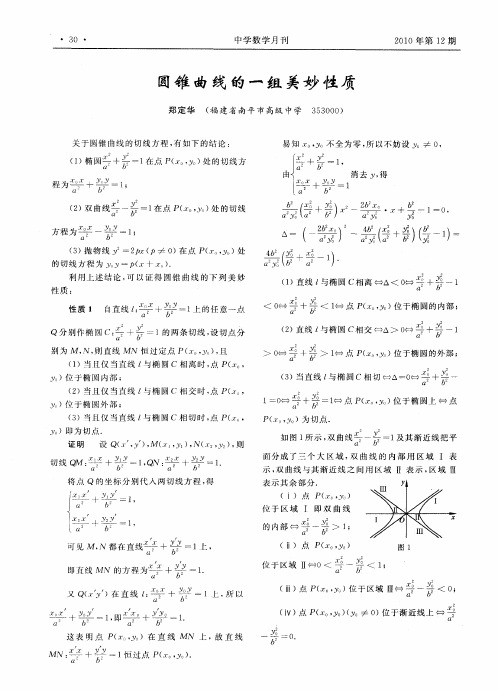 · 30 ·
中学数学月刊
2010年第12期
圆锥曲线的一组美妙性质
郑定华 (福建省南平市高级中学 353000)
关于圆锥曲线的切线方程,有如下的结论:
(1) 椭圆 x²/a² + y²/b² = 1 在点 P(x₀,y₀) 处的切线方
程为 x₀x/a² + y₀y/b² = 1;
(2) 双曲线 x²/a² − y²/b² = 1 在点 P(x₀,y₀) 处的切线
方程为 x₀x/a² − y₀y/b² = 1;
(3) 抛物线 y² = 2px(p ≠ 0) 在点 P(x₀,y₀) 处
的切线方程为 y₀y = p(x + x₀).
利用上述结论,可以证得圆锥曲线的下列美妙
性质:
性质 1 自直线 l: x₀x/a² + y₀y/b² = 1 上的任意一点
Q 分别作椭圆 C: x²/a² + y²/b² = 1 的两条切线,设切点分
别为 M,N,则直线 MN 恒过定点 P(x₀,y₀),且
(1) 当且仅当直线 l 与椭圆 C 相离时,点 P(x₀,
y₀) 位于椭圆内部;
(2) 当且仅当直线 l 与椭圆 C 相交时,点 P(x₀,
y₀) 位于椭圆外部;
(3) 当且仅当直线 l 与椭圆 C 相切时,点 P(x₀,
y₀) 即为切点.
证明 设 Q(x′,y′),M(x₁,y₁),N(x₂,y₂),则
切线 QM: x₁x/a² + y₁y/b² = 1,QN: x₂x/a² + y₂y/b² = 1.
将点 Q 的坐标分别代入两切线方程,得
x₁x′/a² + y₁y′/b² = 1,
x₂x′/a² + y₂y′/b² = 1,
可见 M,N 都在直线 x′x/a² + y′y/b² = 1 上,
即直线 MN 的方程为 x′x/a² + y′y/b² = 1.
又 Q(x′y′) 在直线 l: x₀x/a² + y₀y/b² = 1 上,所以
x₀x′/a² + y₀y′/b² = 1,即 x′x₀/a² + y′y₀/b² = 1.
这表明点 P(x₀,y₀) 在直线 MN 上,故直线
MN: x′x/a² + y′y/b² = 1 恒过点 P(x₀,y₀).
易知 x₀,y₀ 不全为零,所以不妨设 y₀ ≠ 0,
由 { x²/a² + y²/b² = 1,
x₀x/a² + y₀y/b² = 1 消去 y,得
b²/(a²y₀²) (x₀²/a² + y₀²/b²) x² − 2b²x₀/(a²y₀²) · x + b²/y₀² − 1 = 0,
Δ = (− 2b²x₀/(a²y₀²))² − 4b²/(a²y₀²) (x₀²/a² + y₀²/b²)(b²/y₀² − 1) =
4b²/(a²y₀²) (x₀²/a² + y₀²/b² − 1).
(1) 直线 l 与椭圆 C 相离 ⇔ Δ < 0 ⇔ x₀²/a² + y₀²/b² − 1
< 0 ⇔ x₀²/a² + y₀²/b² < 1 ⇔ 点 P(x₀,y₀) 位于椭圆的内部;
(2) 直线 l 与椭圆 C 相交 ⇔ Δ > 0 ⇔ x₀²/a² + y₀²/b² − 1
> 0 ⇔ x₀²/a² + y₀²/b² > 1 ⇔ 点 P(x₀,y₀) 位于椭圆的外部;
(3) 当直线 l 与椭圆 C 相切 ⇔ Δ = 0 ⇔ x₀²/a² + y₀²/b² −
1 = 0 ⇔ x₀²/a² + y₀²/b² = 1 ⇔ 点 P(x₀,y₀) 位于椭圆上 ⇔ 点
P(x₀,y₀) 为切点.
如图 1 所示,双曲线 x²/a² − y²/b² = 1 及其渐近线把平
面分成了三个大区域,双曲线的内部用区域 Ⅰ 表
示,双曲线与其渐近线之间用区域 Ⅱ 表示,区域 Ⅲ
表示其余部分.
(ⅰ) 点 P(x₀,y₀)
位于区域 Ⅰ 即双曲线
的内部 ⇔ x₀²/a² − y₀²/b² > 1;
(ⅱ) 点 P(x₀,y₀)
y
Ⅲ
Ⅱ
Ⅰ
O
Ⅱ
Ⅰ
x
Ⅲ
图 1
位于区域 Ⅱ ⇔ 0 < x₀²/a² − y₀²/b² < 1;
(ⅲ) 点 P(x₀,y₀) 位于区域 Ⅲ ⇔ x₀²/a² − y₀²/b² < 0;
(ⅳ) 点 P(x₀,y₀)(y₀ ≠ 0) 位于渐近线上 ⇔ x₀²/a²
− y₀²/b² = 0.